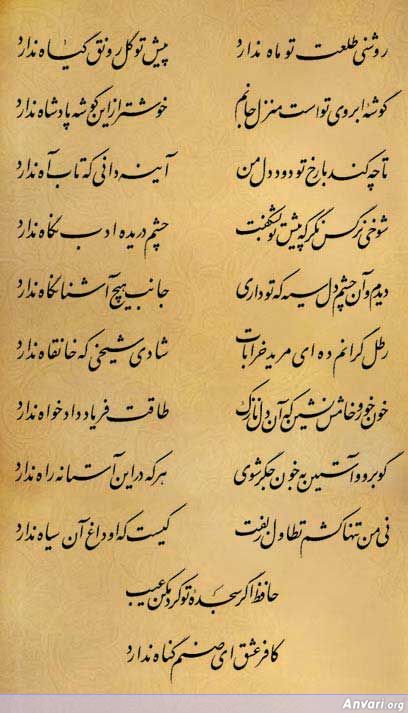 روشنی طلعت تو ماه ندارد پیش تو گل رونق گیاه ندارد
گوشه ابروی تو است منزل جانم خوشتر از این گوشه پادشاه ندارد
تا چه کند با رخ تو دود دل من آینه دانی که تاب آه ندارد
شوخی نرگس نگر که پیش تو بشکفت چشم دریده ادب نگاه ندارد
دیدم و آن چشم دل سیه که تو داری جانب هیچ آشنا نگاه ندارد
رطل گرانم ده ای مرید خرابات شادی شیخی که خانقاه ندارد
خون خور و خامش نشین که آن دل نازک طاقت فریاد دادخواه ندارد
گو برو و آستین به خون جگر شوی هر که در این آستانه راه ندارد
نی من تنها کشم تطاول زلفت کیست که او داغ آن سیاه ندارد
حافظ اگر سجده تو کرد مکن عیب
کافر عشق ای صنم گناه ندارد
Anvari.org